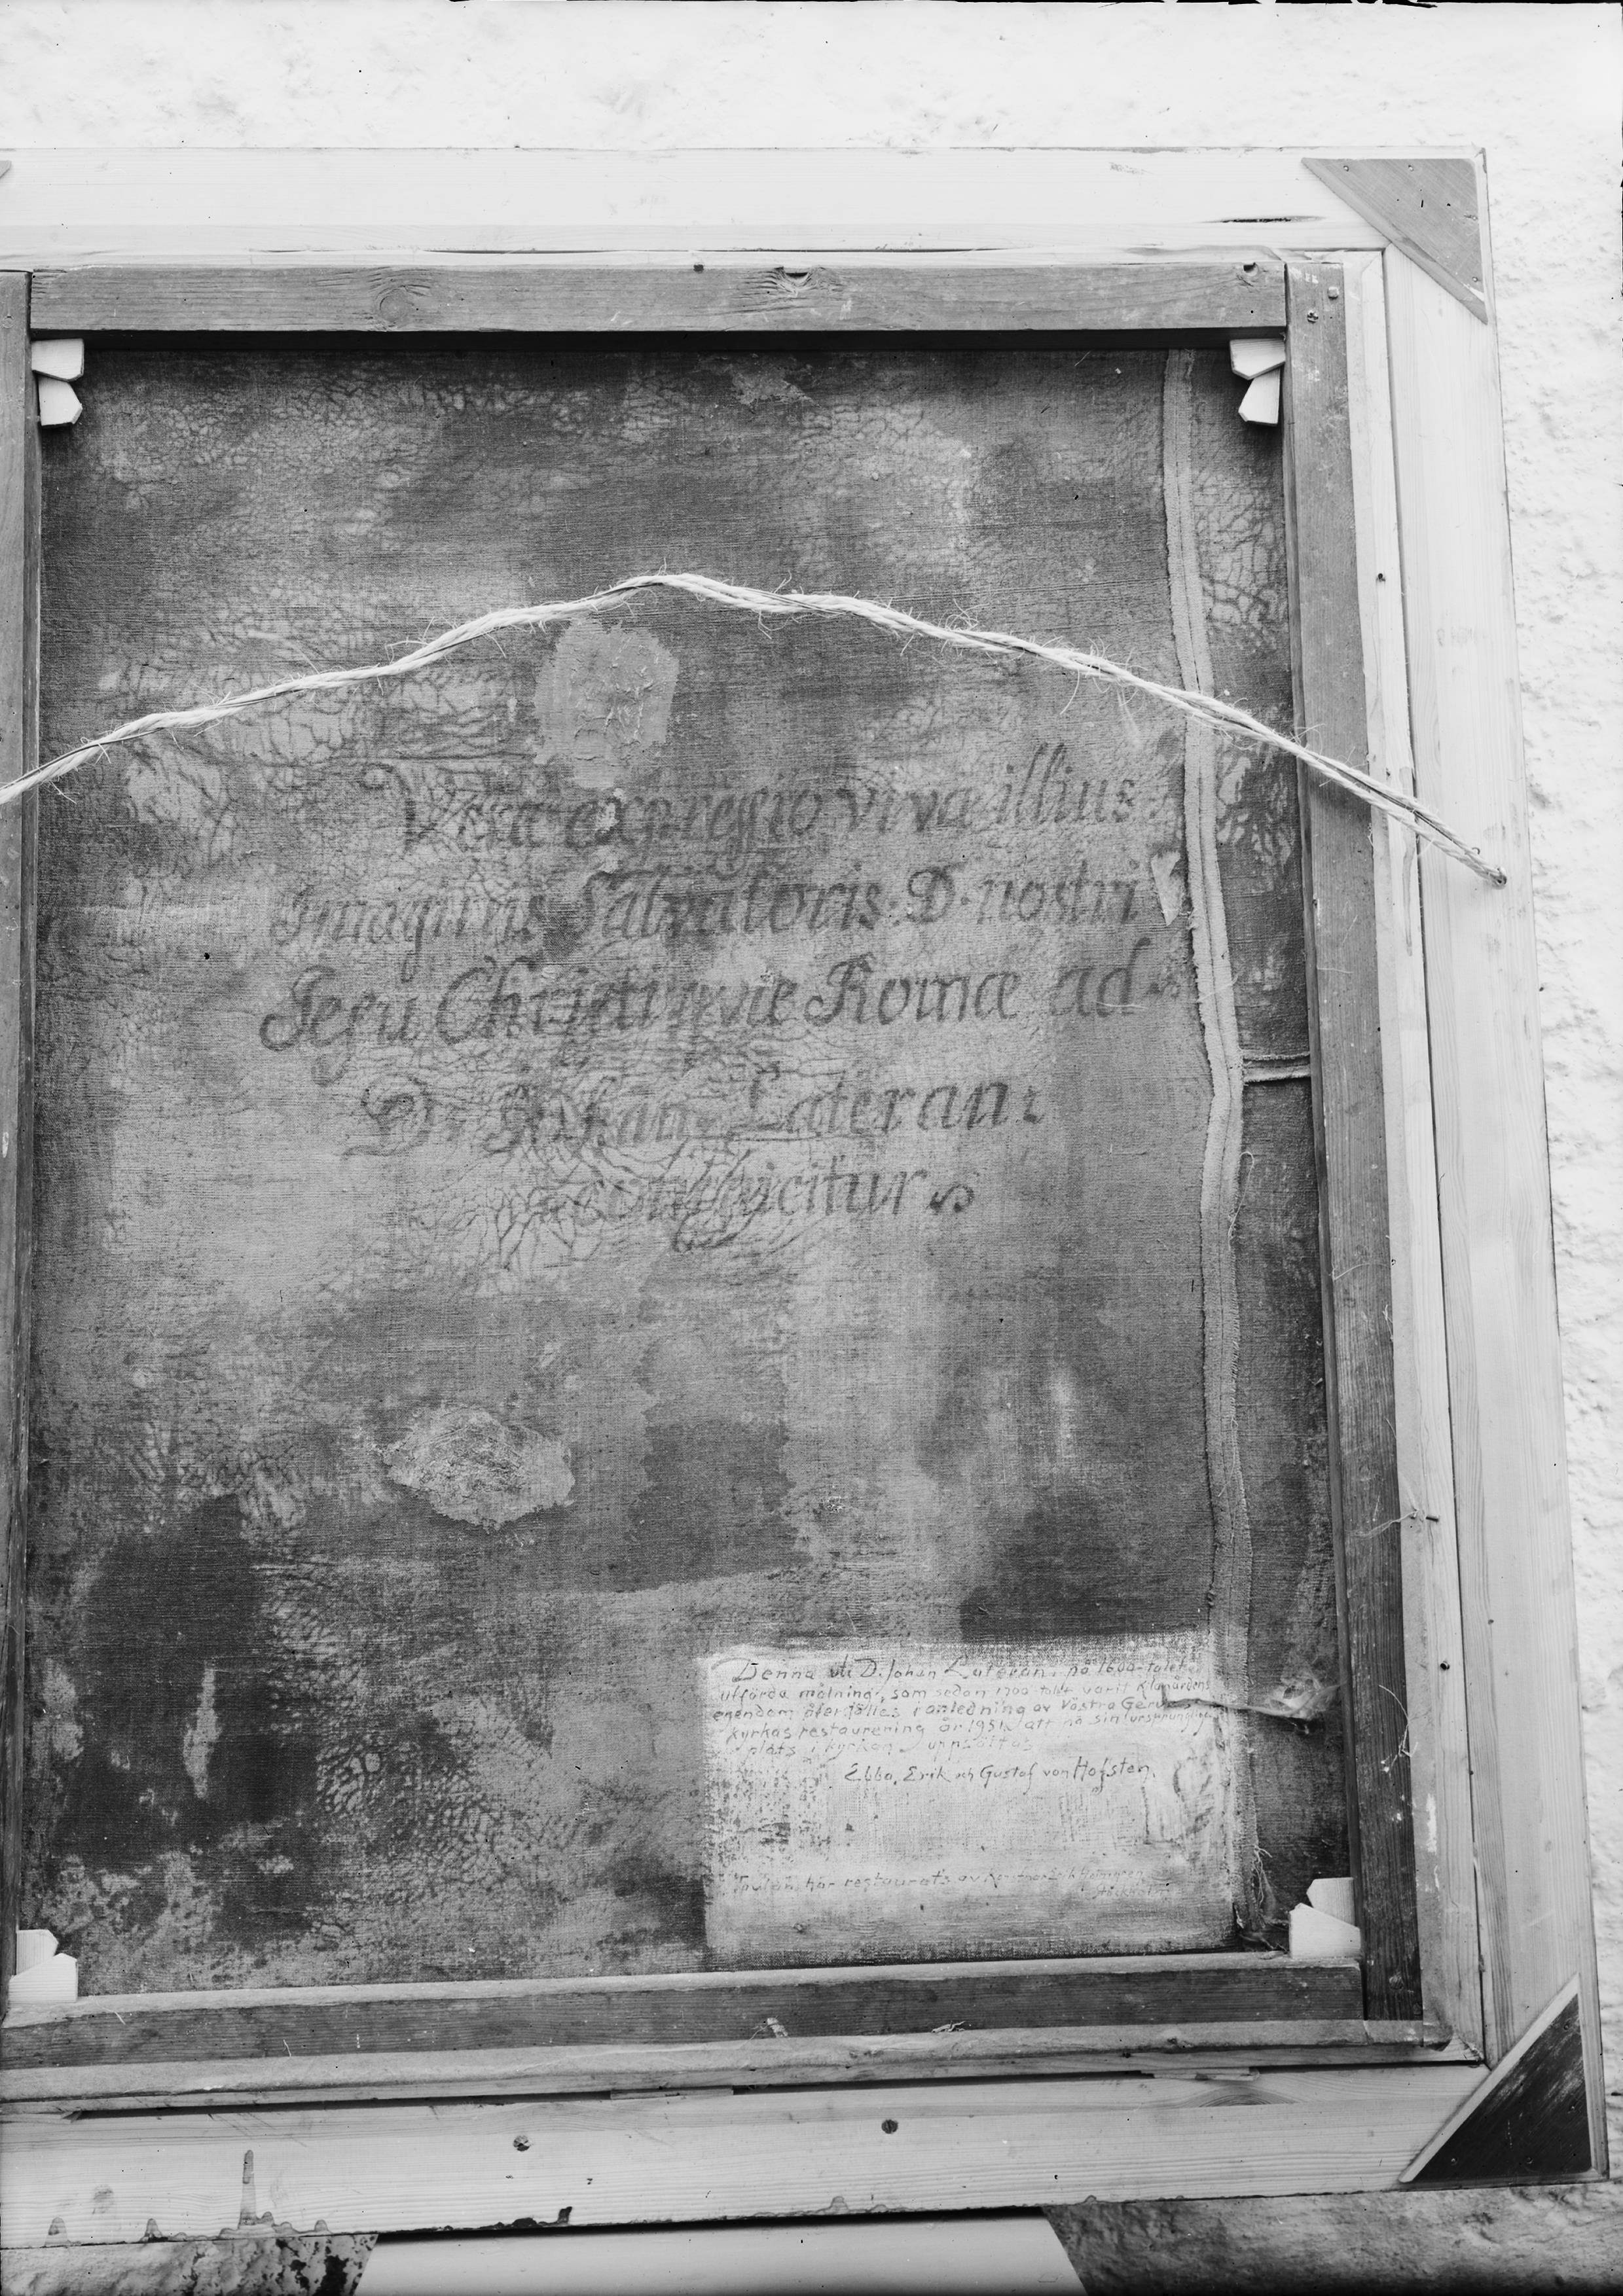 Vera expressio viva illius
Imaginis Salvatoris. D. nostri
Jesu Christi qvæ Romæ ad
D: Johan: Lateran:
conspicitur
Denna uti D. Johan Lateran. på 1600-talet
utförda målning, som sedan 1700-talet varit
egendom återställes i anledning av Västra
kyrkas restaurering år 1951 att på sin ursprungliga
plats i kyrkan uppsättas
Ebba, Erik och Gustaf von Hofsten.
Tavlan har restaurats av Konstnär Erik
Stockholm